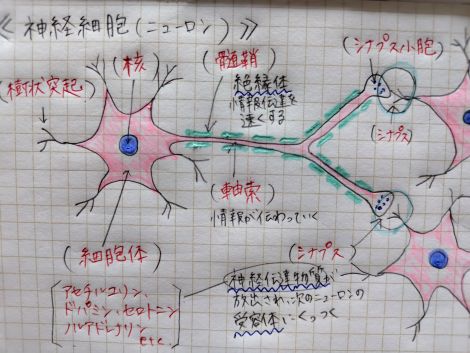 ≪ 神経細胞 (ニューロン) ≫
(核)
(髄鞘)
絶縁体
情報伝達を
速くする
(シナプス小胞)
(樹状突起)
(シナプス)
(軸索)
情報が伝わっていく
(細胞体)
(シナプス)
神経伝達物質が
放出され、次のニューロンの
受容体にくっつく
アセチルコリン、
ドパミン、セロトニン
ノルアドレナリン
etc.